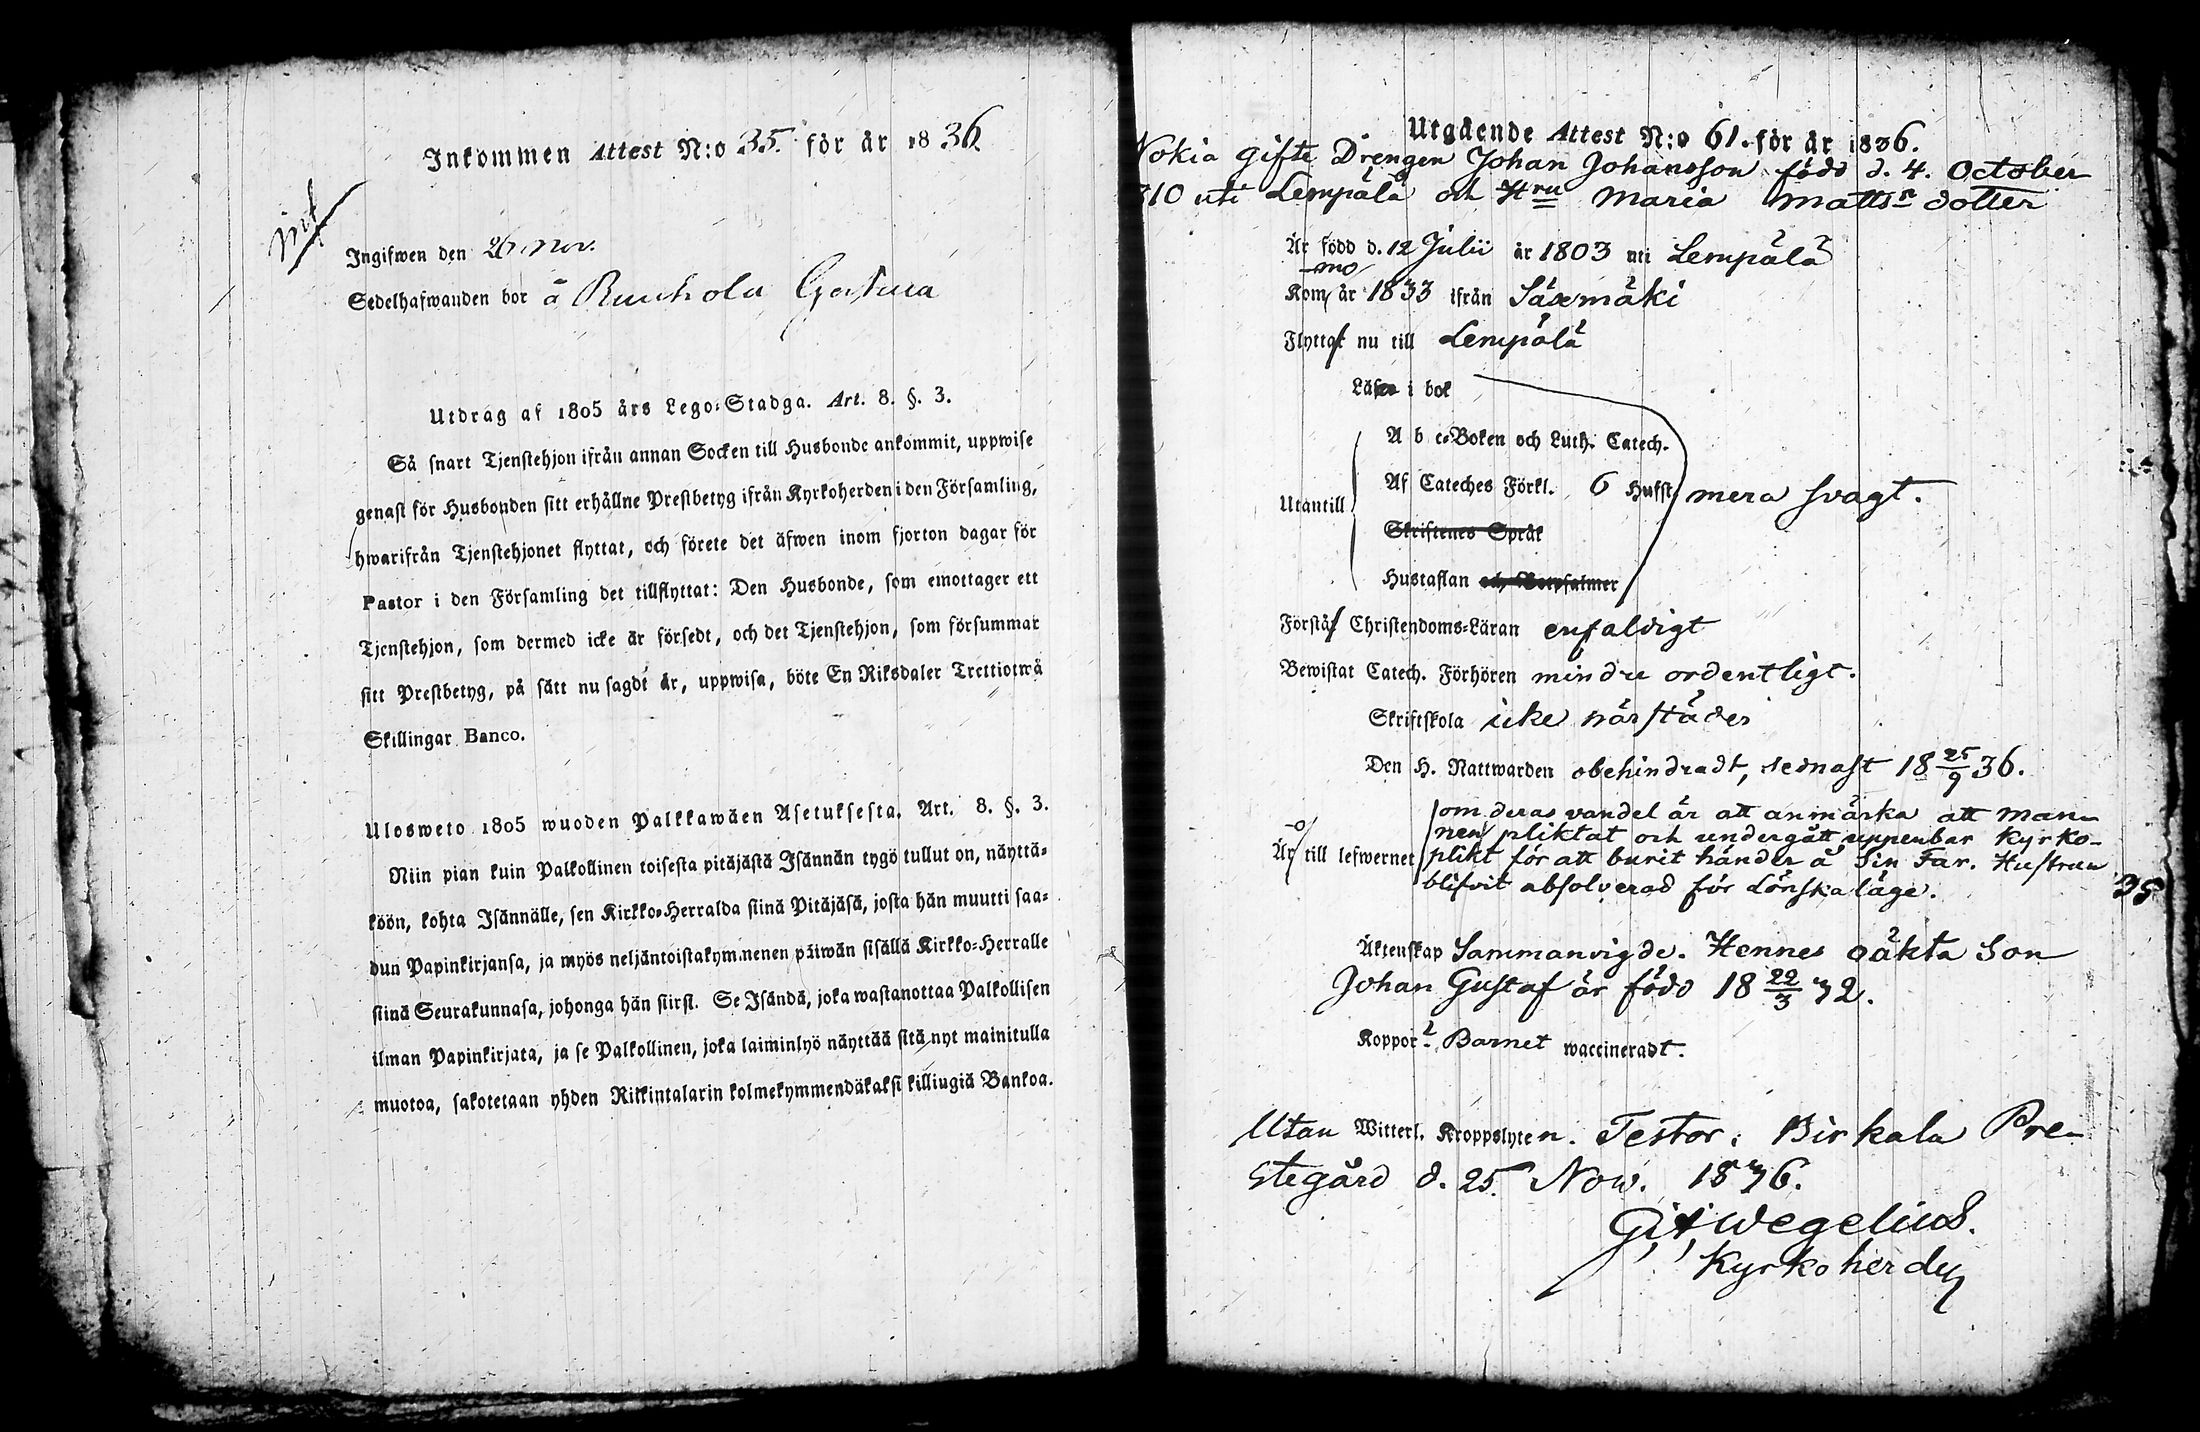 Inkommen Attest N:o 35. för år 1836.
Ingifwen den 26 Nov.
Sedelhafwanden bor å
Utdrag af 1805 års Lego-Stadga. Art. 8. §. 3.
Så snart Tjenstehjon ifrån annan Socken till Husbonde ankommit, uppwise
genast för Husbonden sitt erhållne Prestbetyg ifrån Kyrkoherden i den Församling,
hwarifrån Tjenstehjonet flyttat, och förete det äfwen inom fjorton dagar för
Pastor i den Församling det tillflyttat: Den Husbonde, som emottager ett
Tjenstehjon, som dermed icke är försedt, och det Tjenstehjon, som försummar
sitt Prestbetyg, på sätt nu sagdt är, uppwisa, böte En Riksdaler Trettiotwå
Skillingar Banco.
Ulosweto 1805 wuoden Palkkawäen Asetuksesta. Art. 8. §. 3.
Niin pian kuin Palkollinen toisesta pitäjästä Isännän tygö tullut on, näyttä-
köön, kohta Isännälle, sen Kirkko-Herralda siinä Pitäjäsä, josta hän muutti saa-
dun Papinkirjansa, ja myös neljäntoistakymmenen päiwän sisällä Kirkko-Herralle
siinä Seurakunnasa, johonga hän siirsi. Se Isändä, joka wastanottaa Palkollisen
ilman Papinkirjata, ja se Palkollinen, joka laiminlyö näyttää sitä nyt mainitulla
muotoa, sakotetaan yhden Riikintalarin kolmekymmendäkaksi killingiä Bankoa.
Utgående Attest N:o 61. för år 1836.
Nokia gifte Drengen Johan Johansson född d. 4. October
810 uti Lempälä och Hru Maria Mattsr dotter
Är född d. 12 Julii år 1803 uti Lempälä
Kommo år 1833 ifrån Säxmäki
Flytta nu till Lempälä
Läsa i bok
A b c-Boken och Luth. Catech.
Af Cateches Förkl. 6 Hufst. mera svagt.
Utantill
Skriftenes Språk
Hustaflan och Botpsalmer
Förstå Christendoms-Läran enfaldigt
Bewistat Catech. Förhören mindre ordentligt.
Skriftskola icke härstädes
Den H. Nattwarden obehindradt, sednast 18 25/9 36.
Är till lefwernet om deras vandel är att anmärka att man-
nen pliktat och undergått uppenbar Kyrko-
plikt för att burit händer å Sin Far. Hustrun
blifvit absolverad för Lönskaläge.
35
Äktenskap Sammanvigde. Hennes oäkta Son
Johan Gustaf är född 18 22/3 32.
Koppor Barnet waccineradt.
Utan Witterl. Kroppslyten. Testor: Birkala Pre-
stegård d. 25. Nov. 1836.
G: A: Wegelius.
Kyrkoherde